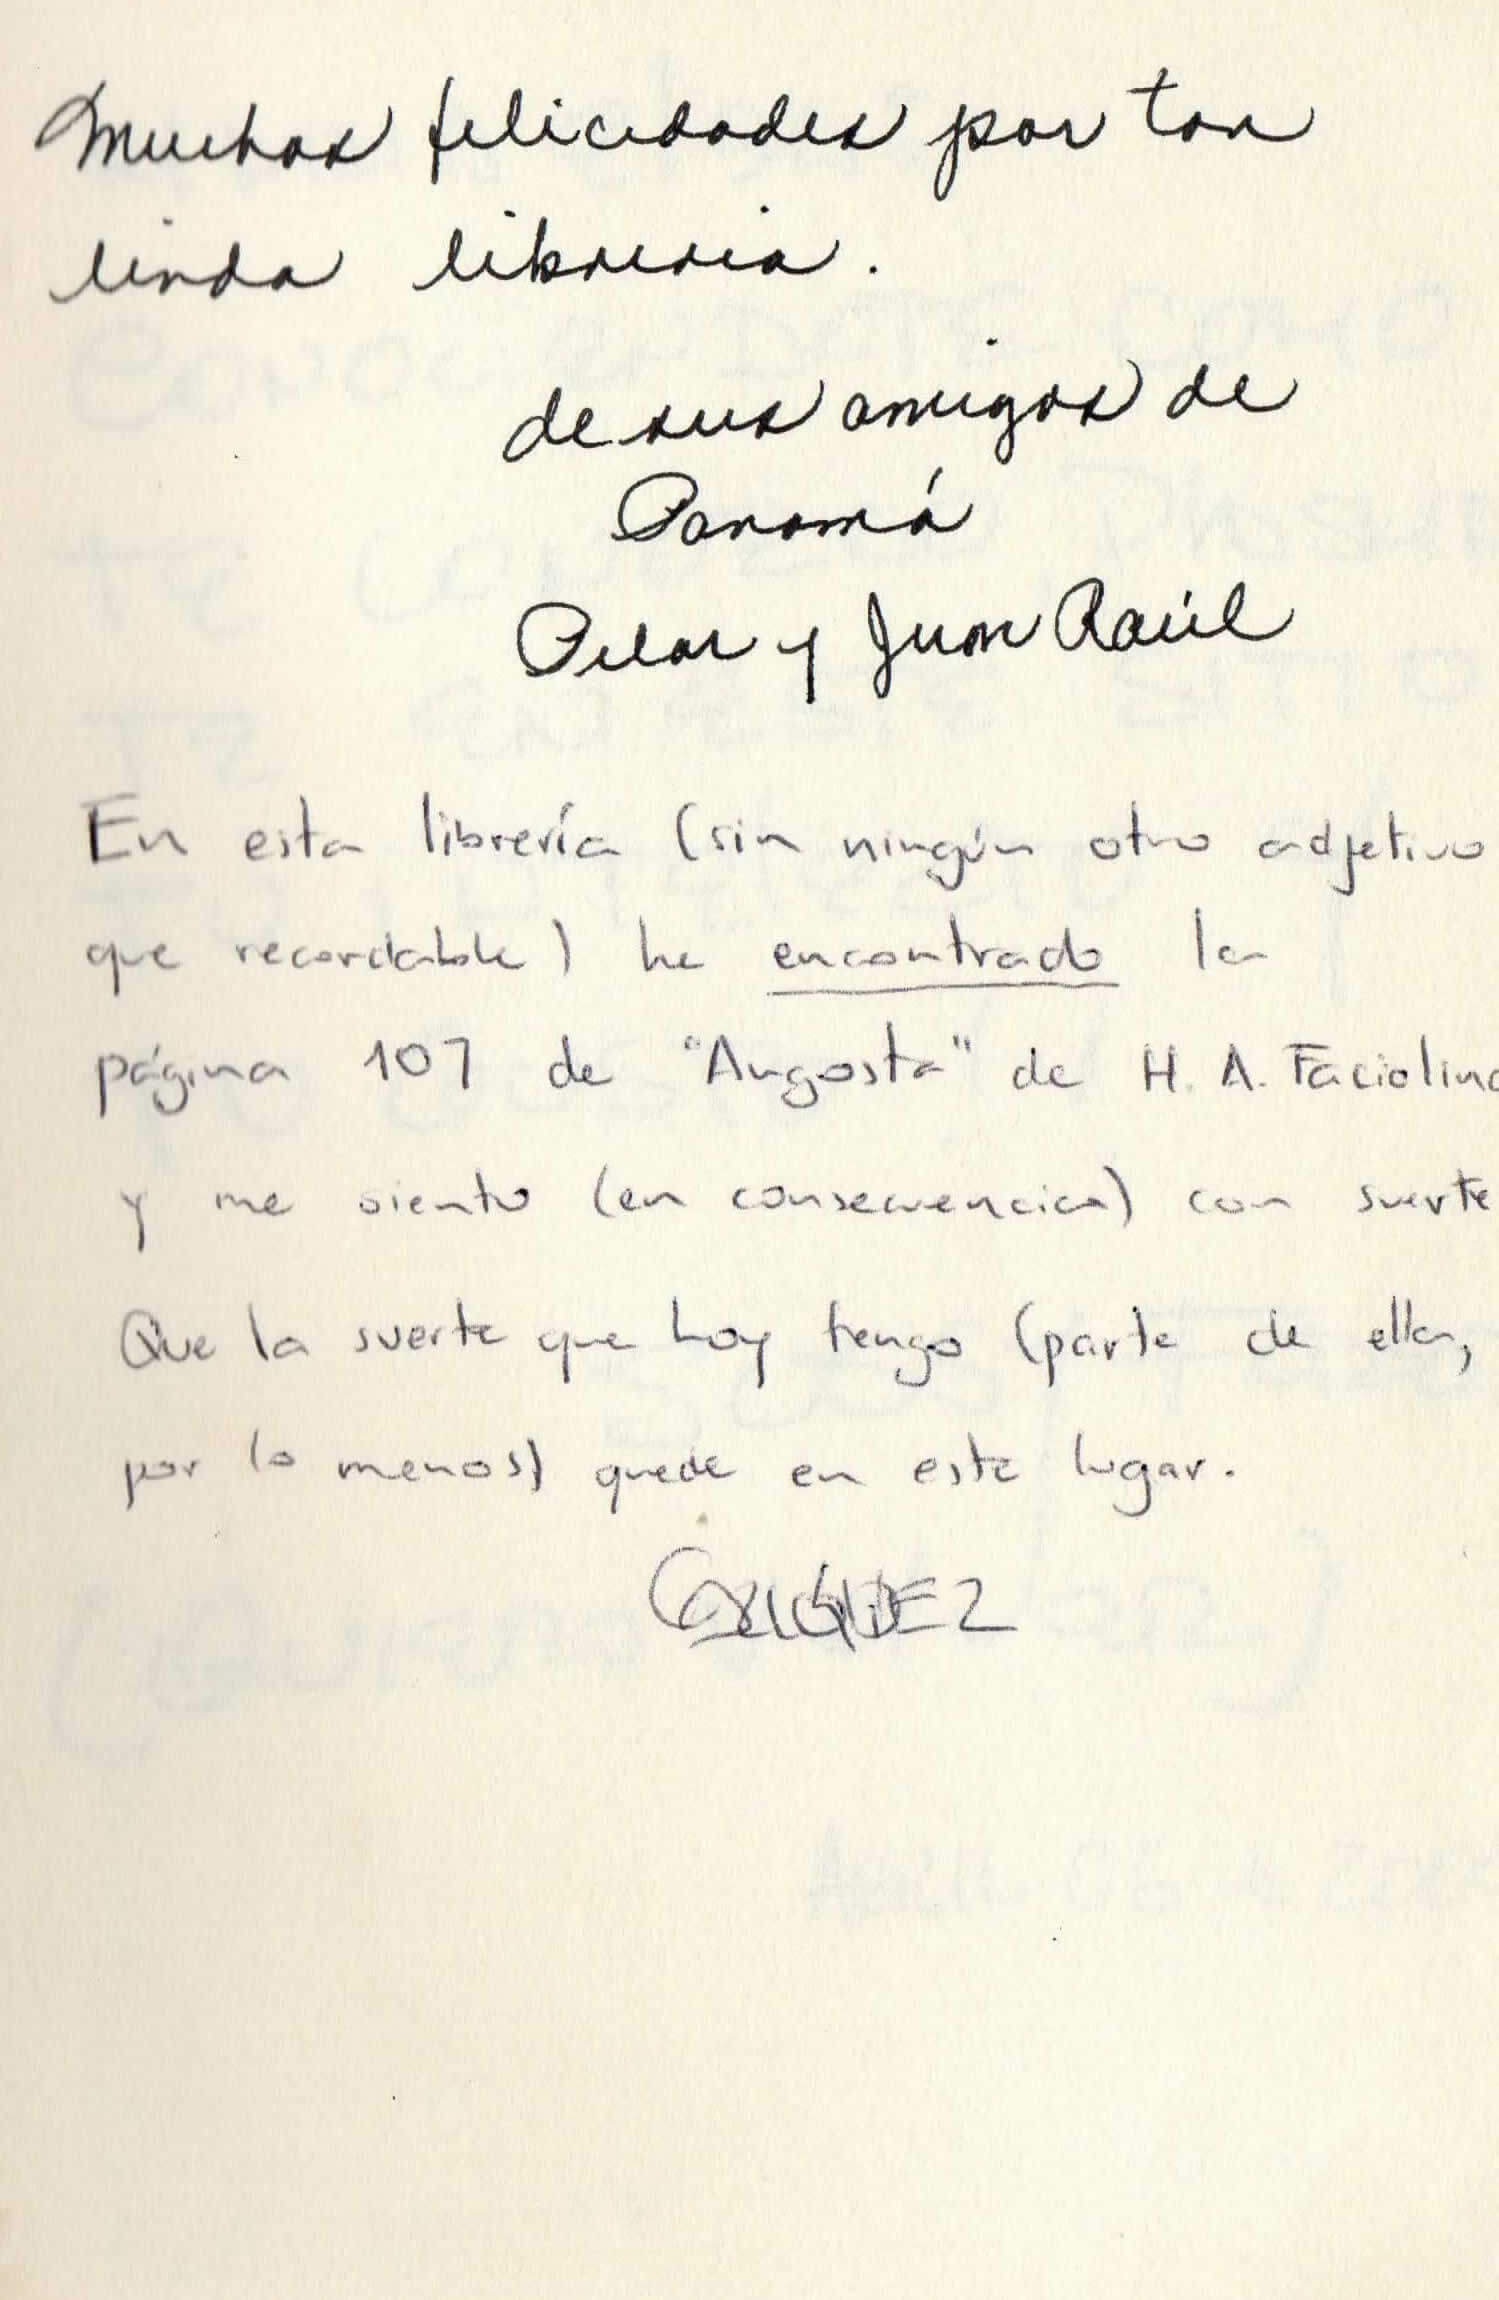 Muchas felicidades por tan
linda libreria.
de sus amigos de
Panamá
Pilar y Juan Raúl
En esta librería (sin ningún otro adjetivo
que recordable) he encontrado la
página 107 de "Angosta" de H. A. Faciolinc
y me siento (en consecuencia) con suerte
Que la suerte que hoy tengo (parte de ella,
por lo menos) quede en este lugar.